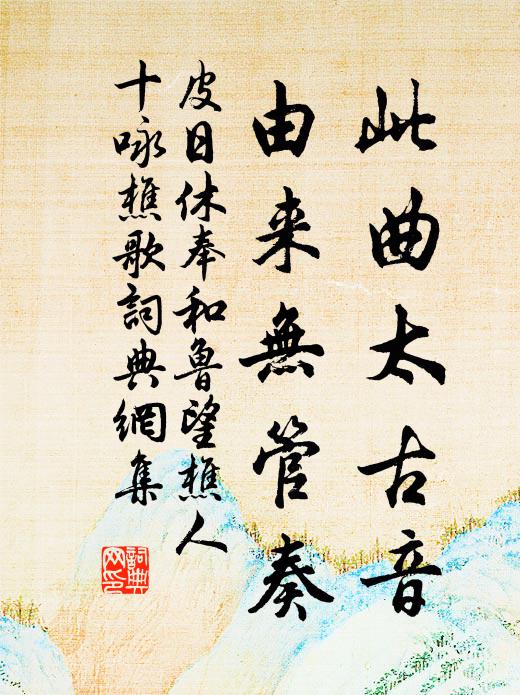 此曲太古音
由来無管奏
皮日休奉和魯望樵人
十咏樵歌詞典網集
詞典網印